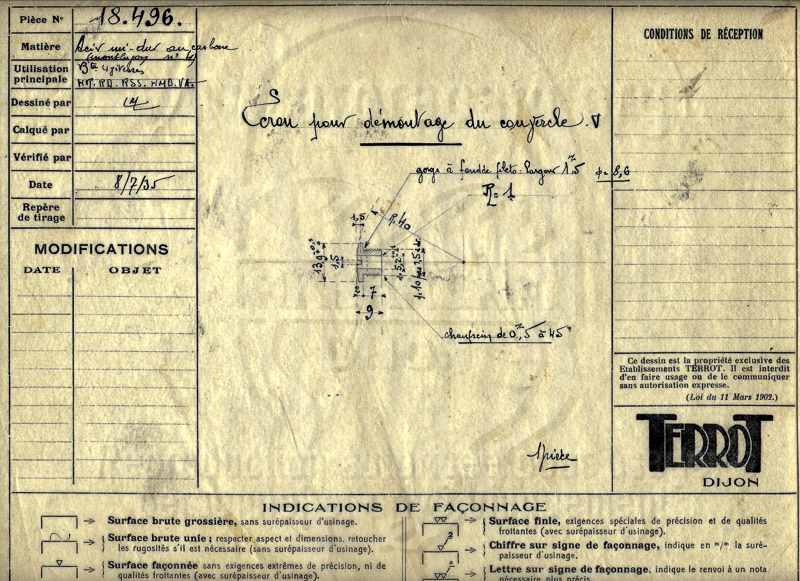 Pièce No 18.496.
Matière Acier mi-dur au carbone
Utilisation
principale Bte 4 vitesses
Dessiné par
Calqué par
Vérifié par
Date 8/7/35
Repère
de tirage
MODIFICATIONS
DATE OBJET
Ecrou pour démontage du couvercle.
gorge à fond de filets: largeur 1,5 φ= 8,6
R= 1
R. 40
1,5
13,9
1,5
7
9
chanfrein de 0,5 à 45°
1 pièce
CONDITIONS DE RÉCEPTION
Ce dessin est la propriété exclusive des
Etablissements TERROT. Il est interdit
d'en faire usage ou de le communiquer
sans autorisation expresse.
(Loi du 11 Mars 1902.)
TERROT
DIJON
INDICATIONS DE FAÇONNAGE
Surface brute grossière, sans surépaisseur d'usinage.
Surface brute unie; respecter aspect et dimensions, retoucher
les rugosités s'il est nécessaire (sans surépaisseur d'usinage).
Surface façonnée sans exigences extrêmes de précision, ni de
qualités frottantes (avec surépaisseur d'usinage).
Surface finie, exigences spéciales de précision et de qualités
frottantes (avec surépaisseur d'usinage).
2
Chiffre sur signe de façonnage, indique en m/m la suré-
paisseur d'usinage.
Lettre sur signe de façonnage, indique le renvoi à un nota
nécessaire plus précis.